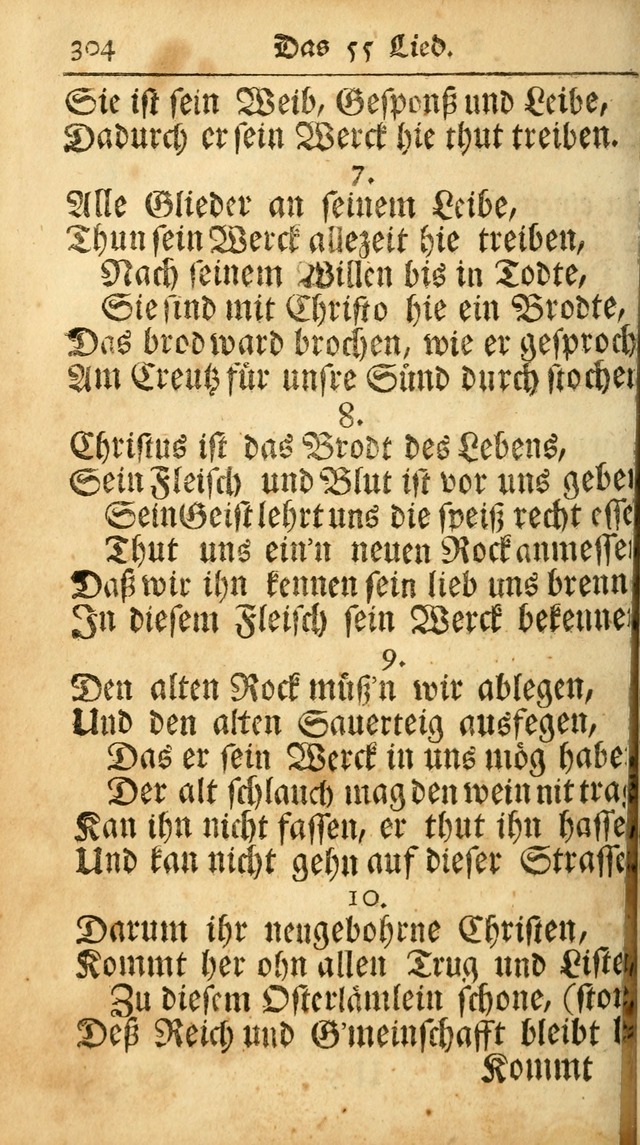 304 Das 55 Lied.
Sie ist sein Weib, Gesponß und Leibe,
Dadurch er sein Werck hie thut treiben.
7.
Alle Glieder an seinem Leibe,
Thun sein Werck allezeit hie treiben,
Nach seinem Willen bis in Todte,
Sie sind mit Christo hie ein Brodte,
Das brod ward brochen, wie er gesproch
Am Creutz für unsre Sünd durch stochen
8.
Christus ist das Brodt des Lebens,
Sein Fleisch und Blut ist vor uns geben
Sein Geist lehrt uns die speiß recht esse
Thut uns ein'n neuen Rock anmessen
Daß wir ihn kennen sein lieb uns brenn
In diesem Fleisch sein Werck bekenne
9.
Den alten Rock müß'n wir ablegen,
Und den alten Sauerteig ausfegen,
Das er sein Werck in uns mög habe
Der alt schlauch mag den wein nit tra
Kan ihn nicht fassen, er thut ihn hasse
Und kan nicht gehn auf dieser Strasse
10.
Darum ihr neugebohrne Christen,
Kommt her ohn allen Trug und Liste
Zu diesem Osterlämlein schone, (ston
Deß Reich und G'meinschafft bleibt
Kommt